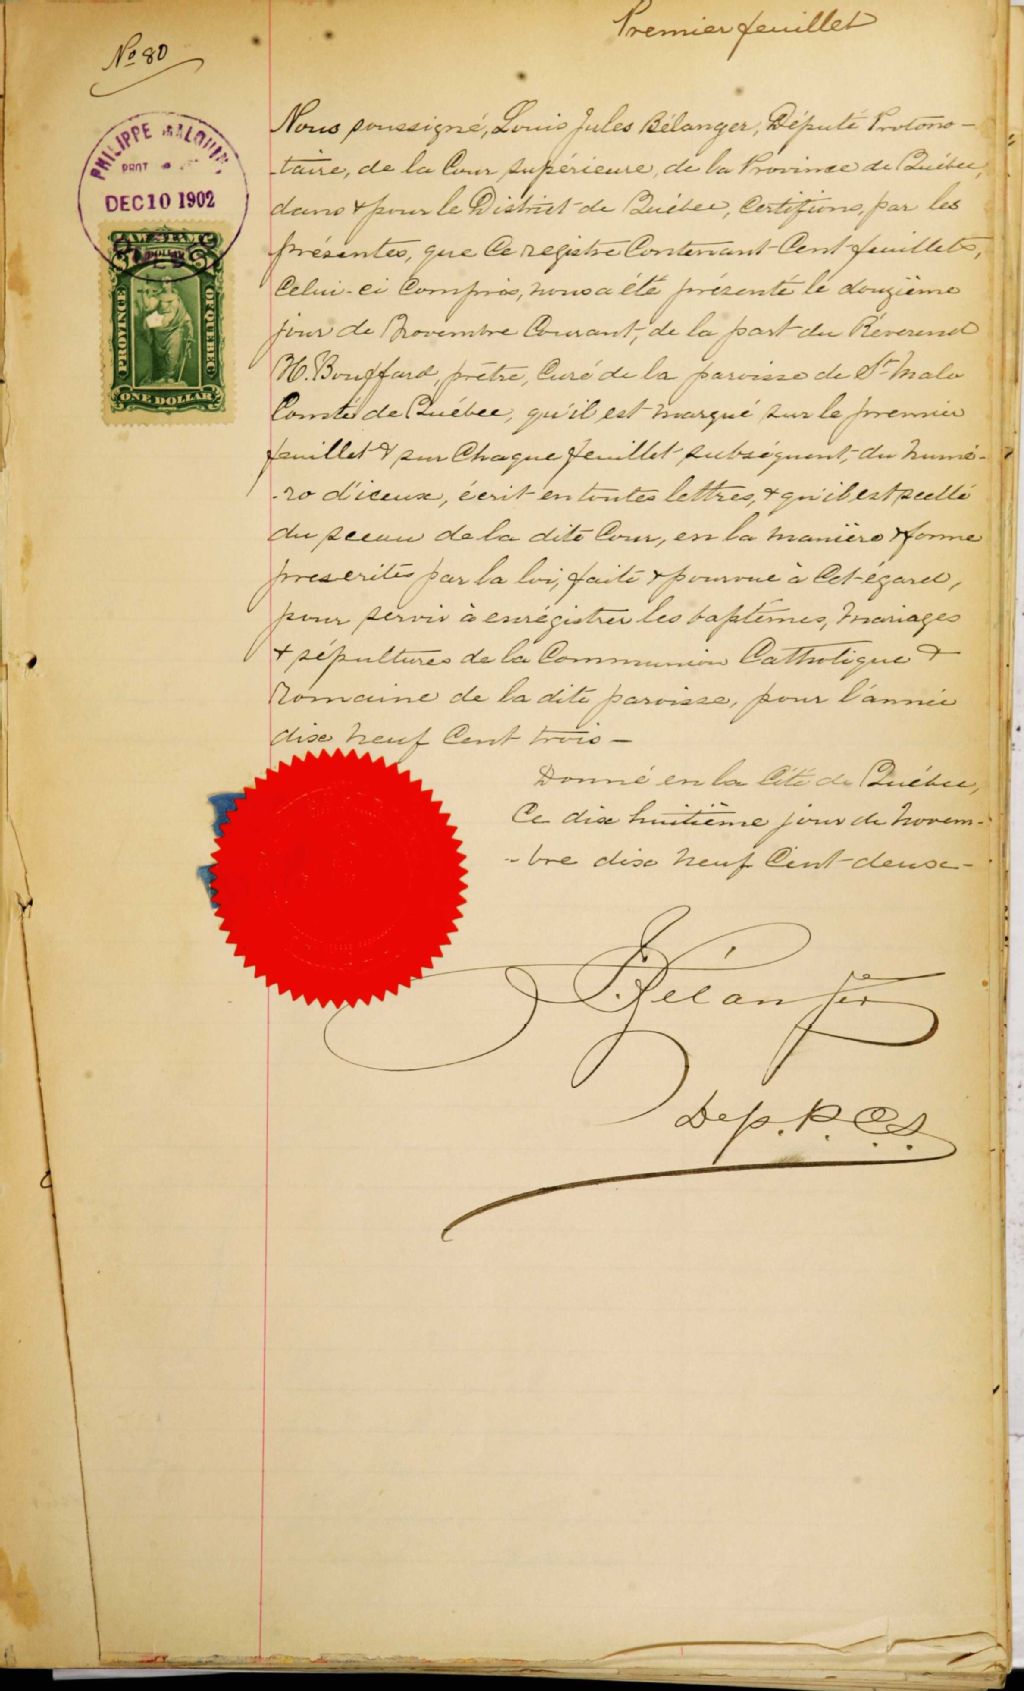 Premier feuillet
No 80
PHILIPPE MALOUIN,
PROT
DEC 10 1902
LAW STAMP
PROVINCE OF QUEBEC
ONE DOLLAR
Nous soussigné, Louis Jules Bélanger, Député Protono-
-taire, de la Cour supérieure, de la Province de Québec,
dans & pour le District de Québec, Certifions, par les
présentes, que Ce registre Contenant Cent feuillets,
Celui-ci Compris, nous a été présenté le douzième
jour de Novembre Courant, de la part du Révérend
H. Bouffard, prêtre, Curé de la paroisse de St Malo
Comté de Québec, qu'il est marqué sur le premier
feuillet & sur Chaque feuillet subséquent, du numé-
-ro d'iceux, écrit en toutes lettres, & qu'il est scellé
du sceau de la dite Cour, en la manière & forme
prescrites par la loi, faite & pourvue à Cet égard,
pour servir à enrégistrer les baptêmes, mariages
& sépultures de la Communion Catholique &
Romaine de la dite paroisse, pour l'année
dix neuf Cent trois -
Donné en la Cité de Québec,
Ce dix huitième jour de Novem-
-bre dix neuf Cent deux -
J. Bélanger
Dep. P. C. S.